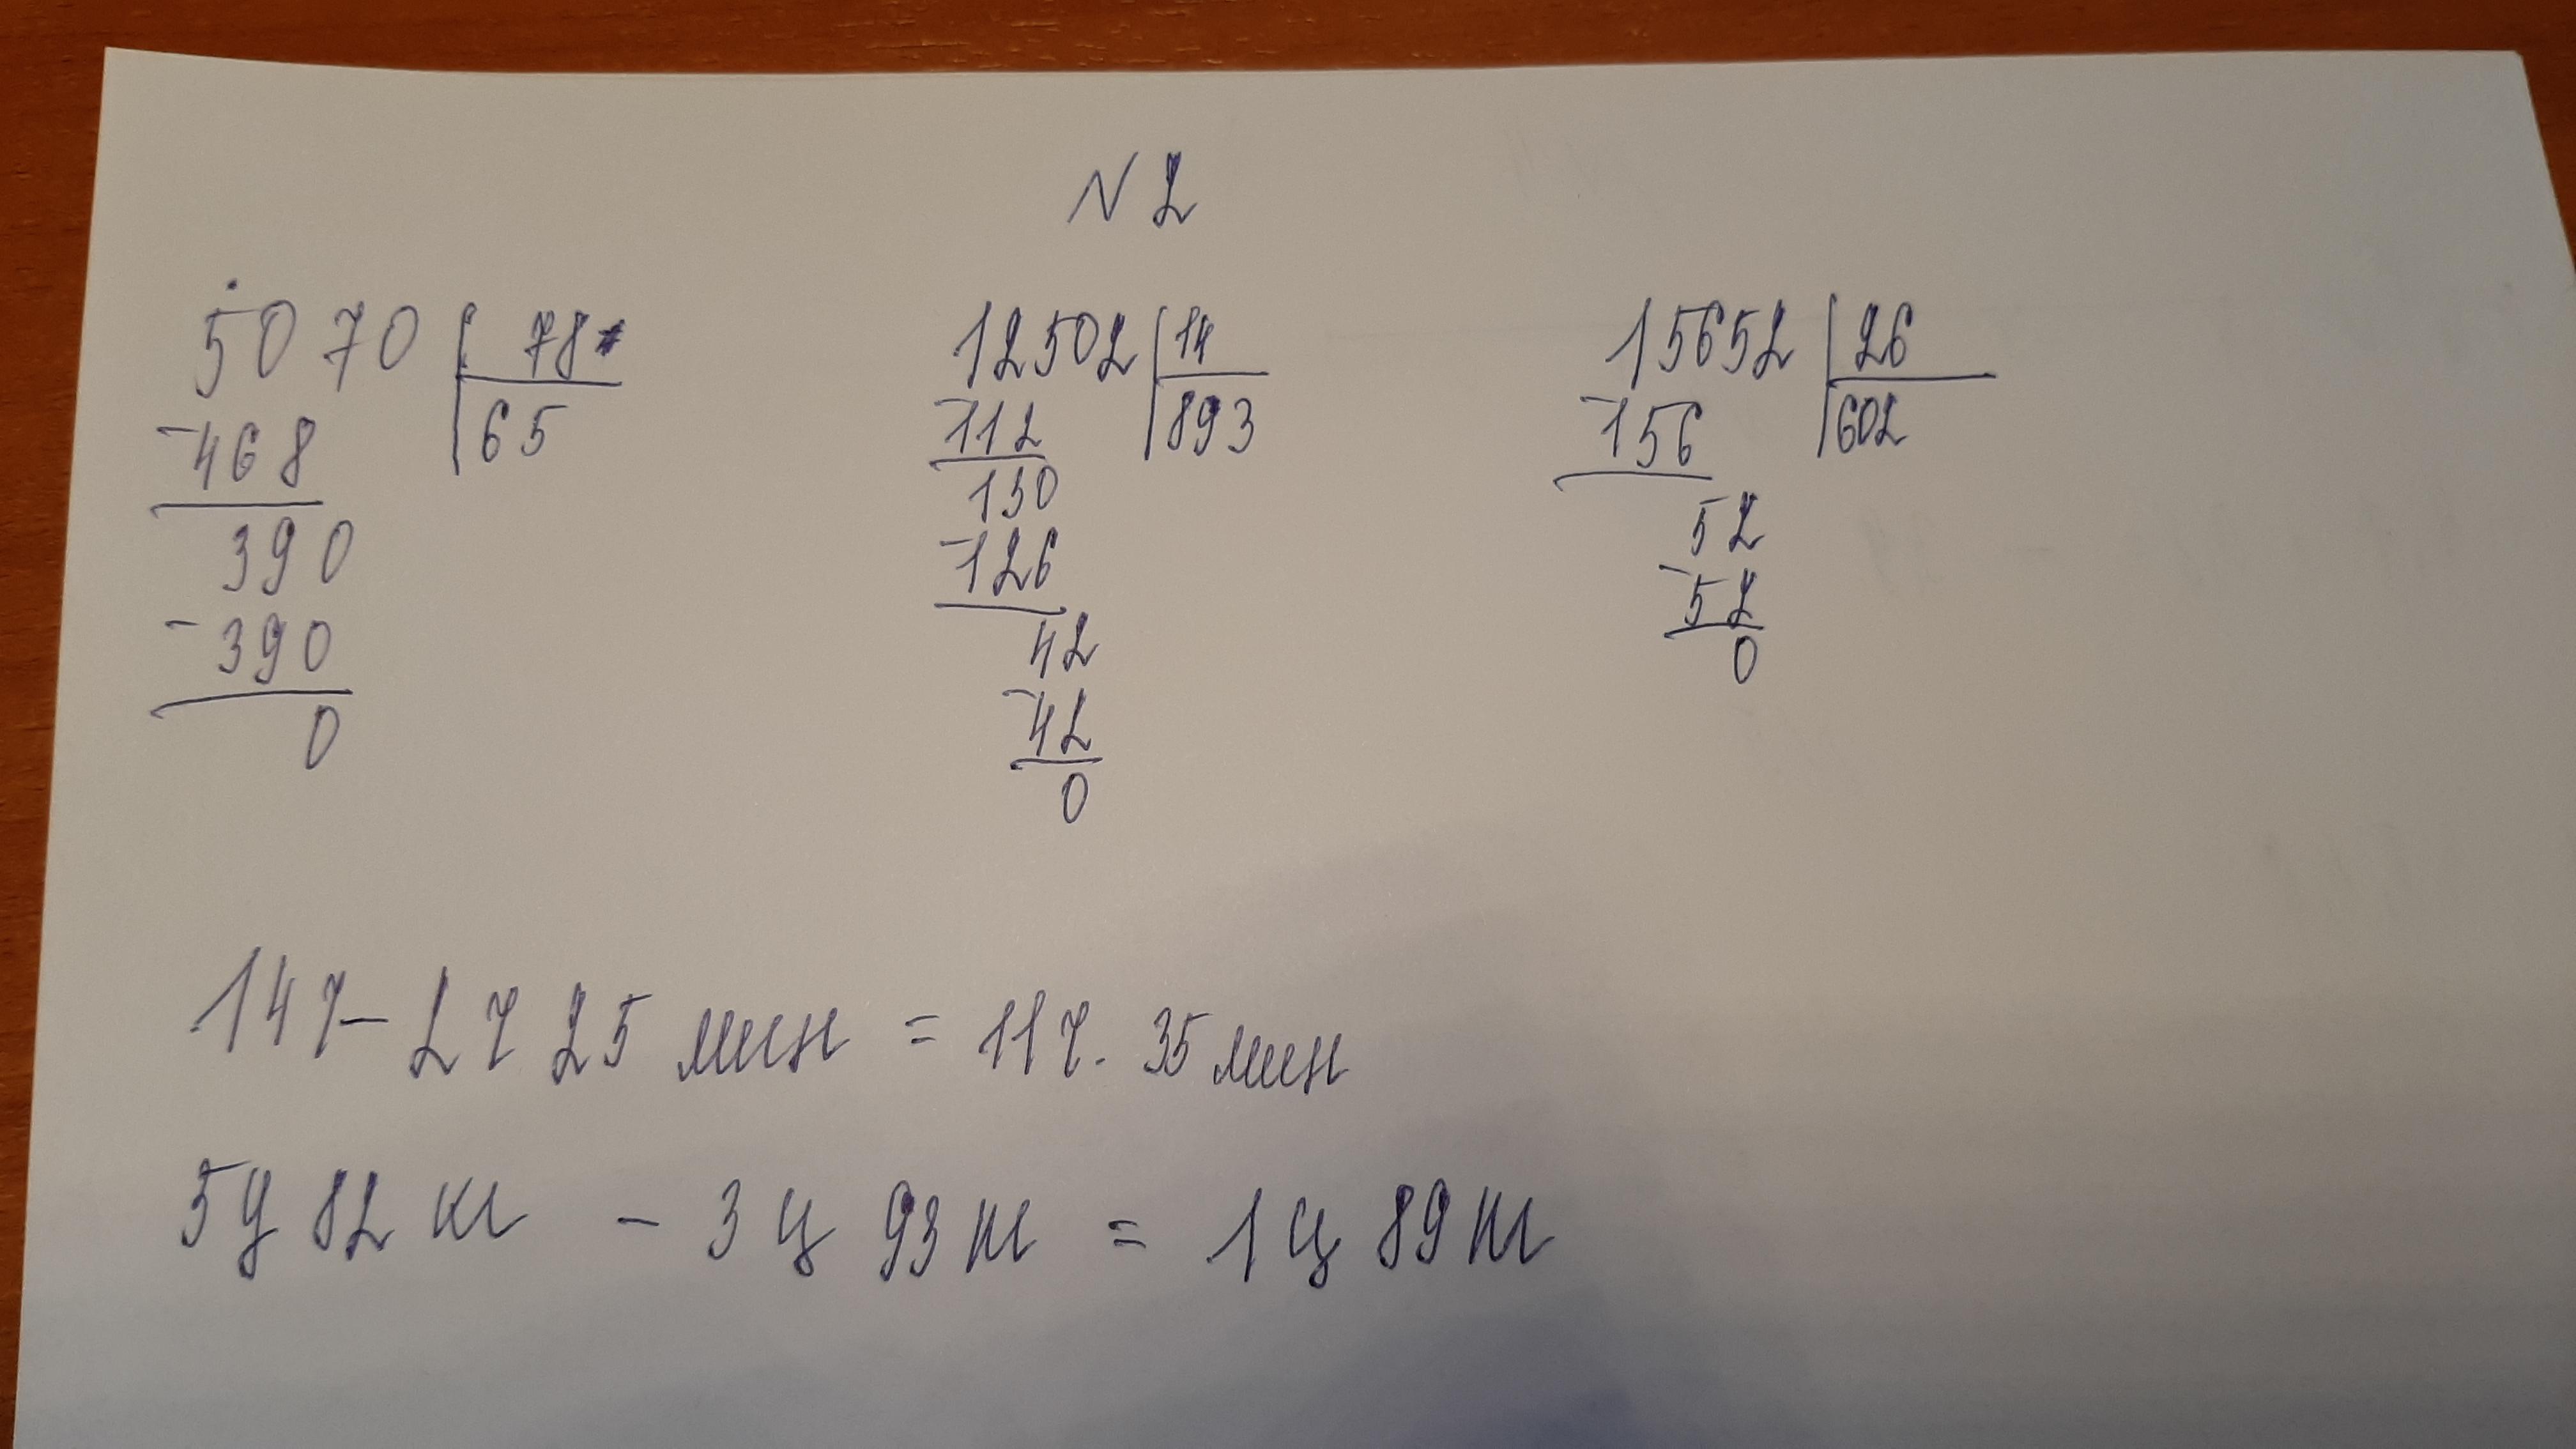 N 2
5070 78
-468 65
390
-390
0
12502 14
-112 893
130
-126
42
-42
0
15652 26
-156 602
52
-52
0
14ч - 2ч 25 мин = 11ч. 35 мин
5ц 82 кг - 3ц 93 кг = 1ц 89 кг